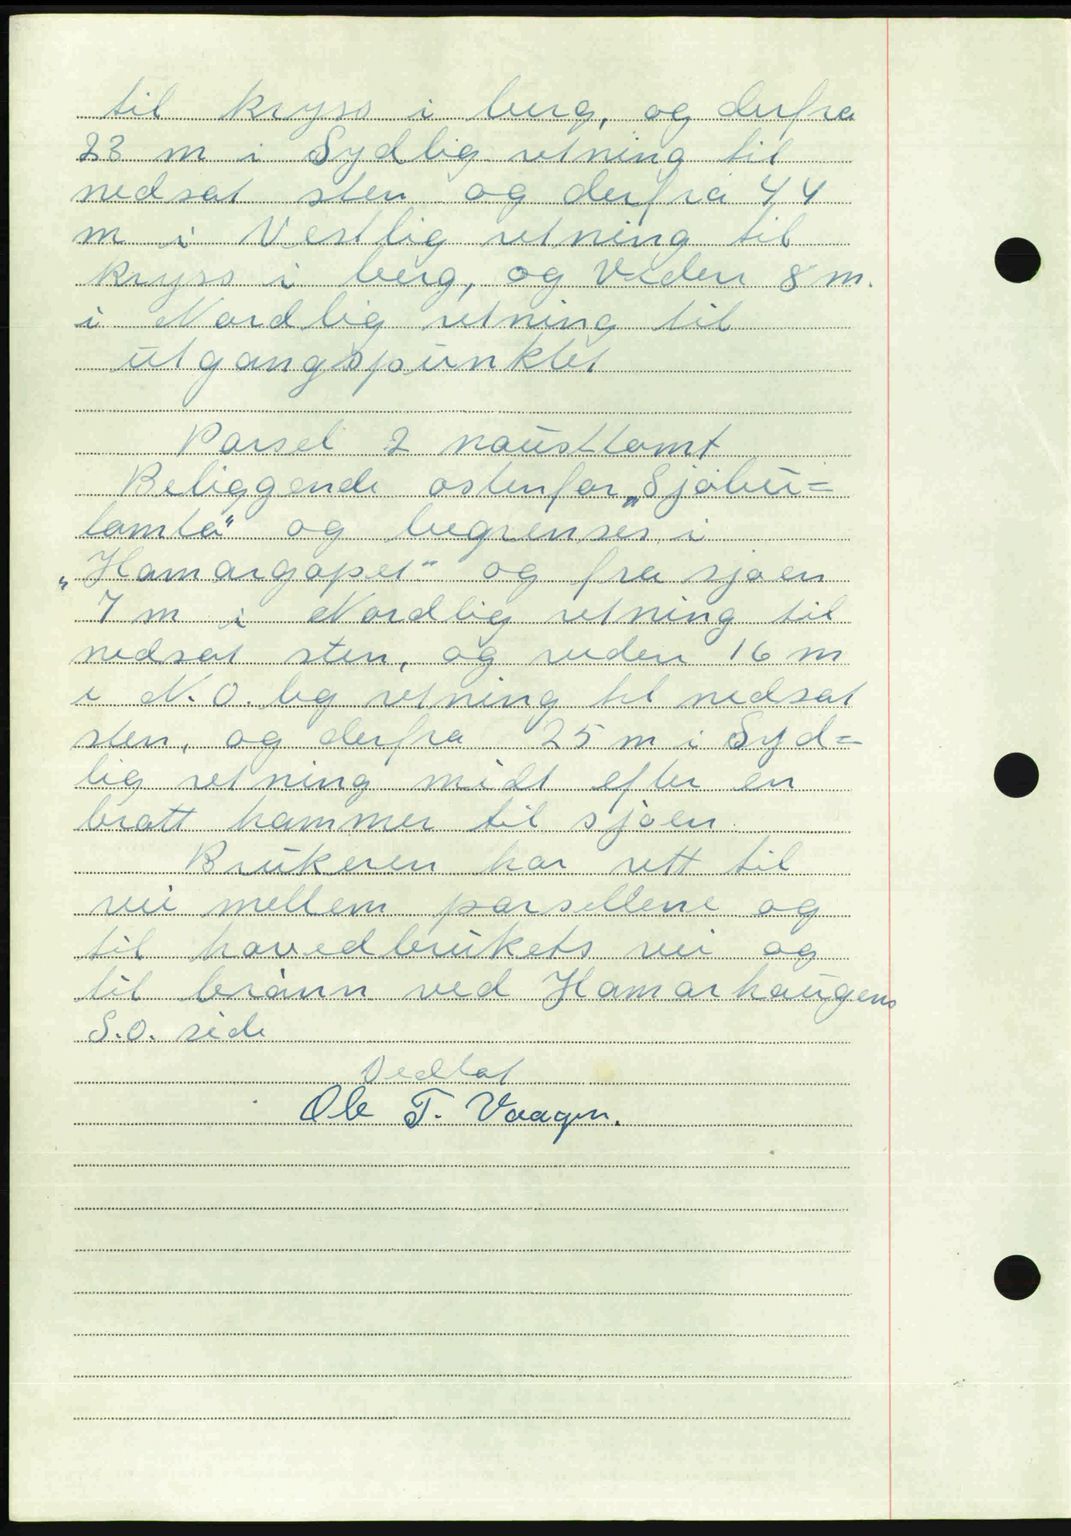 til kryss i berg, og derfra
23 m i Sydlig retning til
nedsat sten og derfra 44
m i Vestlig retning til
kryss i berg, og Viden 8 m.
i Nordlig retning til
utgangspunktet
Parsel 2 nausttomt
Beliggende østenfor „Sjøbu=
tomta" og begrenses i
„Hamargapet" og fra sjøen
7 m i Nordlig retning til
nedsat sten, og viden 16 m
i N.O. lig retning til nedsat
sten, og derfra 25 m i Syd=
lig retning midt efter en
bratt hammer til sjøen.
Brukeren har rett til
vei mellem parsellene og
til hovedbrukets vei og
til brønn ved Hamarhaugens
S.O. side
Vedtat
Ole T. Vaagen.